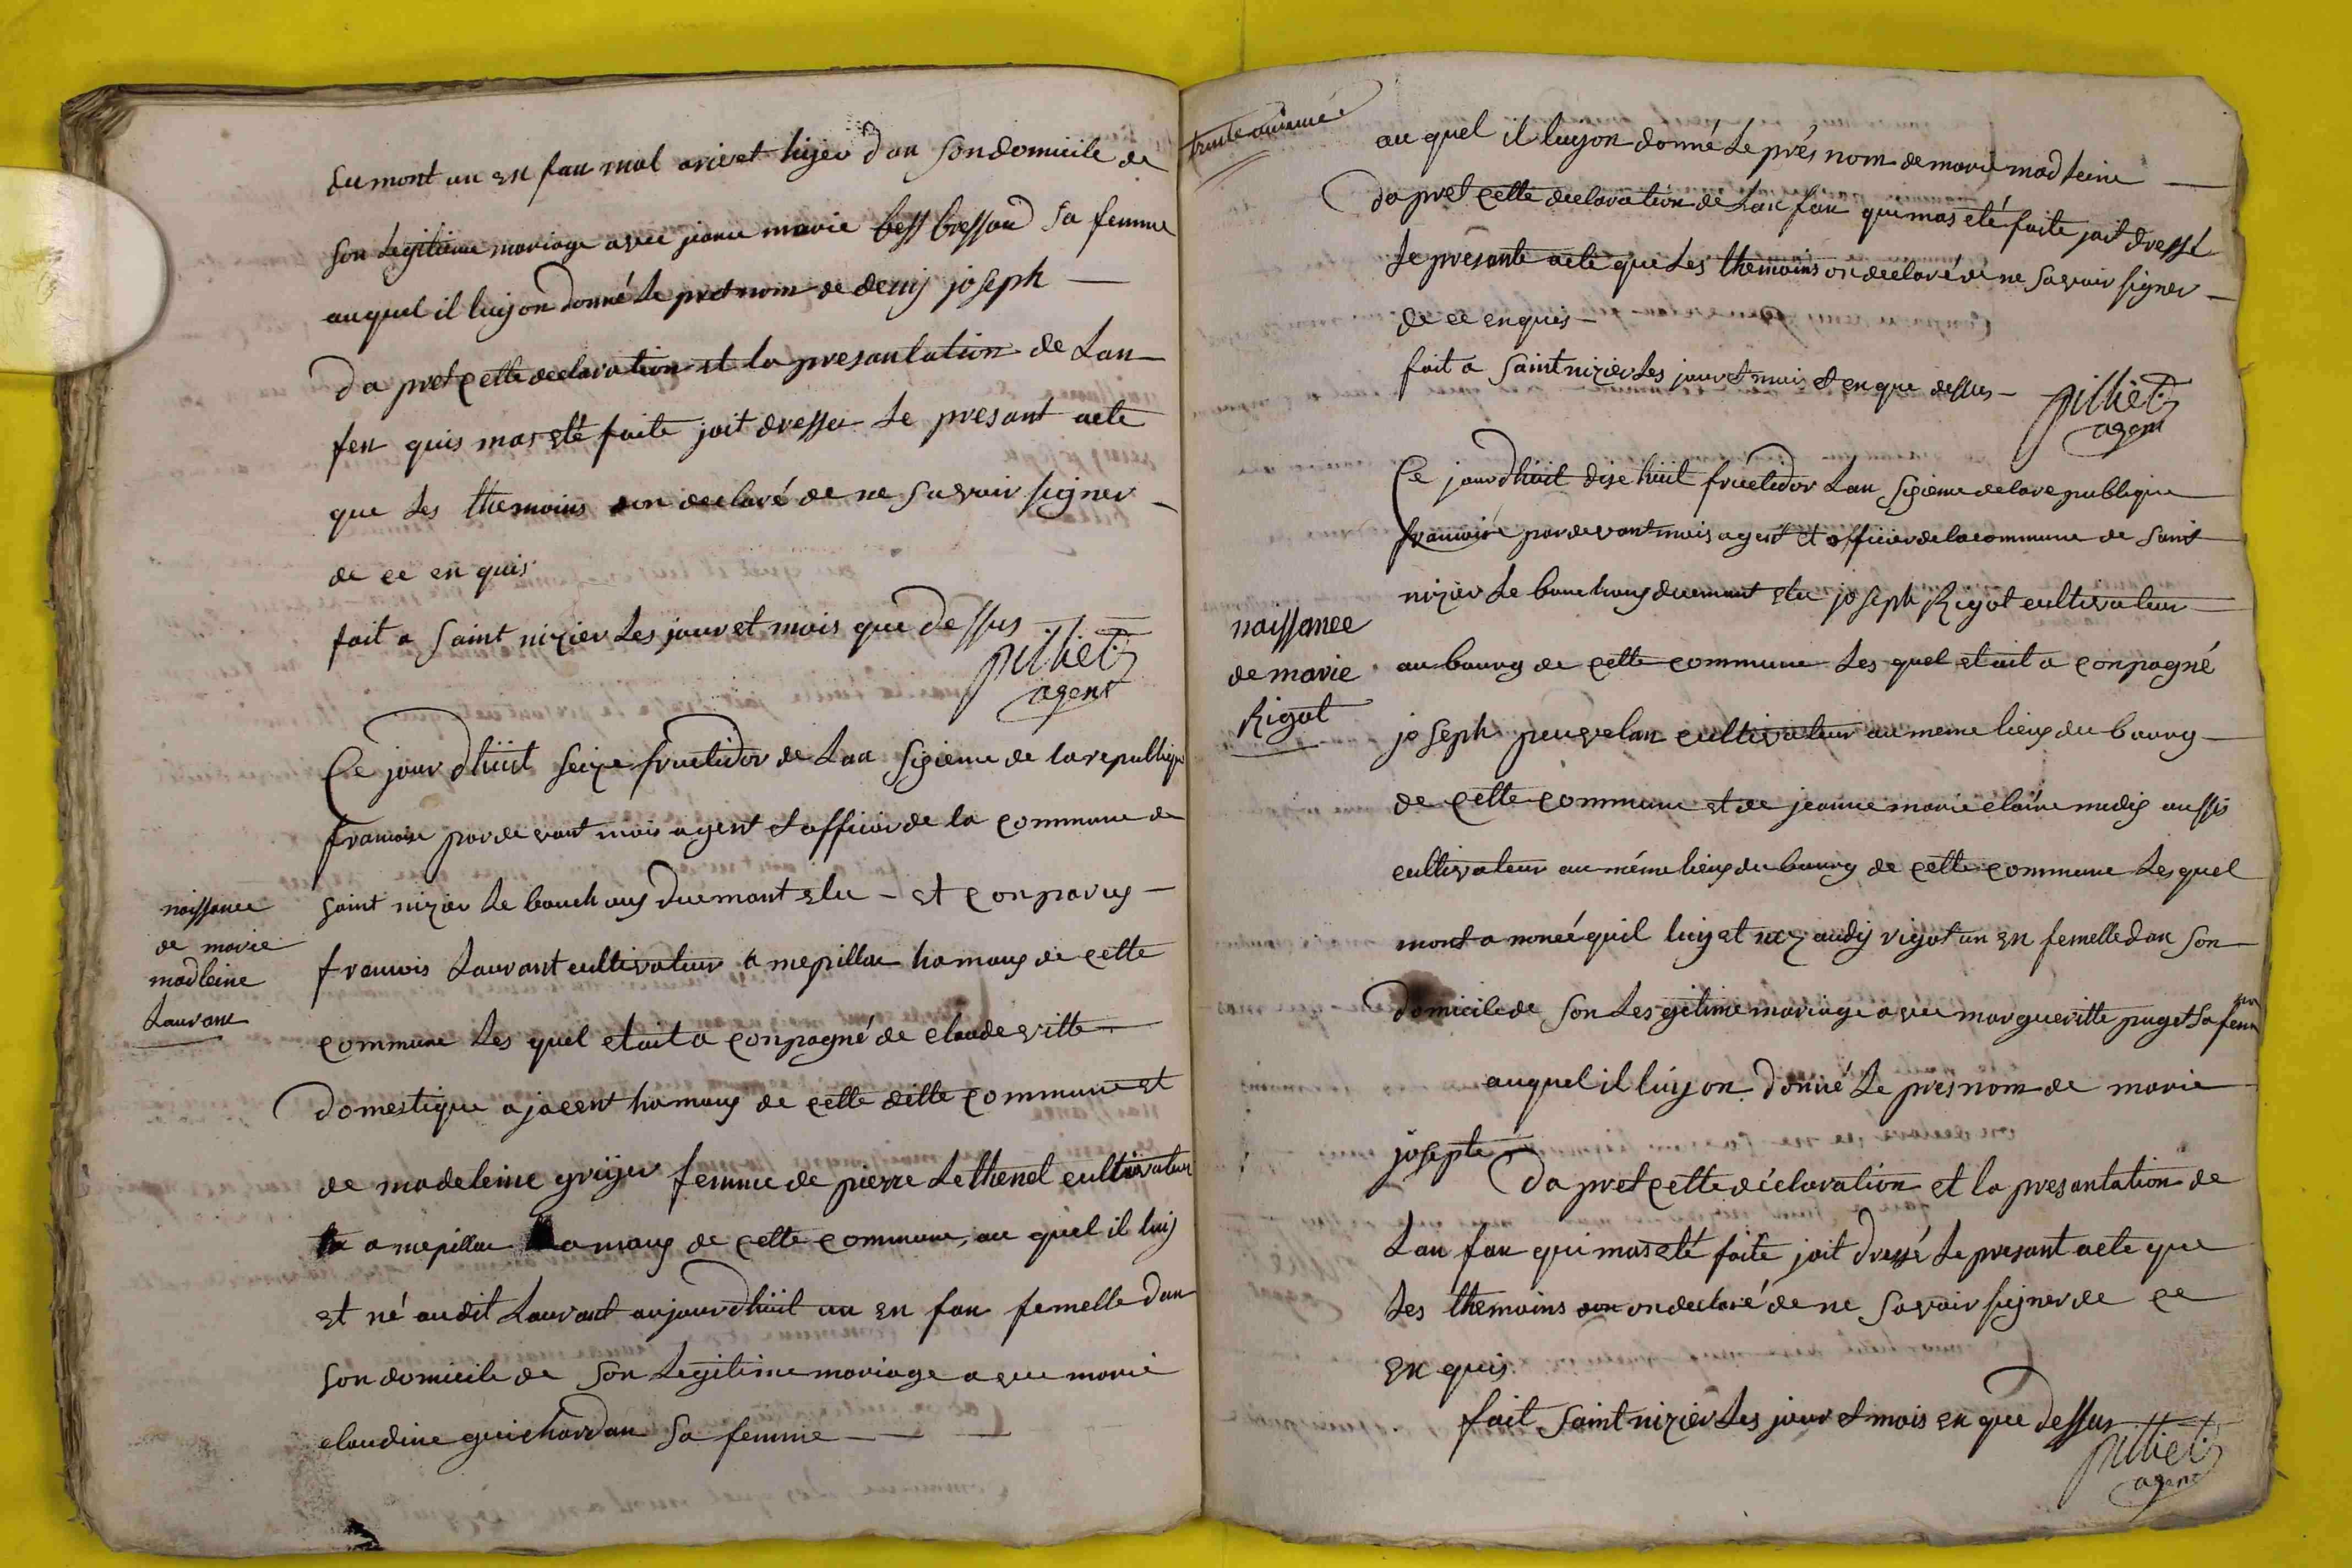 dumont un en fan mal arivet hijer dan son domicile de
son legitime mariage avec jeane marie bess bressoud sa femme
auquel il luy on donné le pretnom de denij joseph
Da pret cette declaration et la presantation de Lan
fen quis mas eté faite jait dresser le presant acte
que les themoins on declaré de ne savoir signer
de ce en quis
fait a saint nizier les jour et mois que dessus
pilliet
agent
Ce jourdhuit seize fructidor de Lan sizieme de la republique
francaise pardevant mois agent et officier de la commune de
naissance
de marie
madleine
Lauvant
saint nizier le bouchouy duemant elu - et conparuy
francois Lauvant cultivateur a mepillac hamauy de cette
commune les quel etait a conpagné de claude vitte
domestique a jacent hamauy de cette ditte commune et
de madeleine grijer femme de pierre Lethenet cultivateur
a mepillac hamauy de cette commune, au quel il luij
et né audit Lauvant aujourdhuit un en fan femelle dan
son domicile de son Legitime mariage avec marie
claudine guichardan sa femme
au quel il luyon donné Le prés nom de marie madleine
Da pret cette declaration de Lan fan qui mas eté faite jait dressé
Le presante acte que Les themoins on declaré de ne savoir signer
de ce en quis
fait a saint nizier Les jour et mois et en que dessus
pilliet
agent
Ce jourdhuit dise huit fructidor Lan sizieme de la republique
francaise pardevant mois agent et officier de la commune de saint
nizier Le bouchouy duemant elu joseph Rigot cultivateur
naissance
de marie
Rigot
au bourg de cette commune Les quel etait a conpagné
joseph peuvelan cultivateur au meme lieuy du bourg
de cette commune et de jeanne marie claire mudij aussis
cultivateur au même lieuy du bourg de cette commune Les quel
mont a noncé quil luij et néz audij rigot un en femelle dan son
domicile de son Les gitime mariage avec margueritte puget sa femme
auquel il luij on donné Le pres nom de marie
josepte
Da pret cette déclaration et la presantation de
Lan fan qui mas eté faite jait dressé Le presant acte que
Les themoins on on declaré de ne savoir signer de ce
en quis
fait saint nizier Les jour et mois en que dessus
pilliet
agent